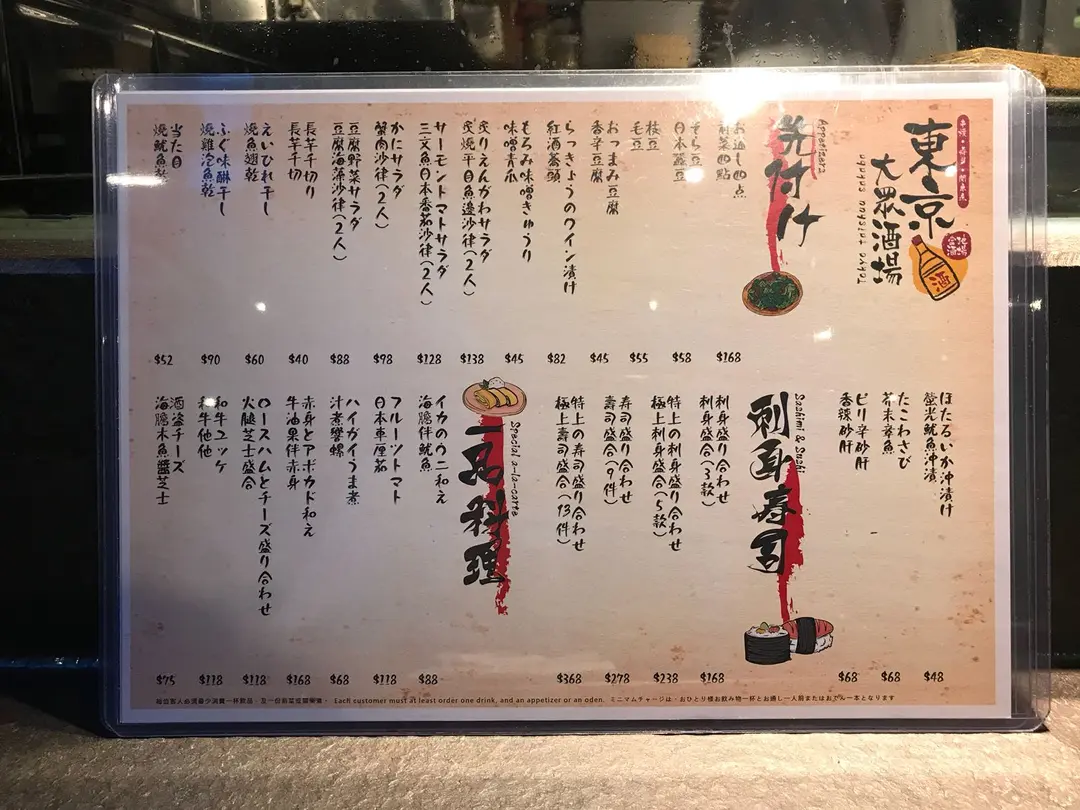 東京
大眾酒場
Tokyo taishou sakaba
酒
Appetizers
先付け
お通し四点
前菜四點
$168
そら豆
日本蠶豆
$58
枝豆
毛豆
$55
おつまみ豆腐
香辛豆腐
$45
らっきょうのワイン漬け
紅酒蕎頭
$82
もろみ味噌きゅうり
味噌青瓜
$45
炙りえんがわサラダ
炙燒平目魚邊沙律(2人)
$138
サーモントマトサラダ
三文魚日本番茄沙律(2人)
$128
かにサラダ
蟹肉沙律(2人)
$98
豆腐野菜サラダ
豆腐海藻沙律(2人)
$88
長芋千切り
長芋千切
$40
えいひれ干し
燒魚翅乾
$60
ふぐ味醂干し
燒雞泡魚乾
$90
当た目
燒魷魚乾
$52
ほたるいか沖漬け
螢光魷魚沖漬
$48
たこわさび
芥末章魚
$68
ピリ辛砂肝
香辣砂肝
$68
Sashimi & Sushi
刺身寿司
刺身盛り合わせ
刺身盛合(3款)
$168
特上の刺身盛り合わせ
極上刺身盛合(5款)
$238
寿司盛り合わせ
壽司盛合(9件)
$278
特上の寿司盛り合わせ
極上壽司盛合(13件)
$368
Special a-la-carte
一品料理
イカのウニ和え
海膽伴魷魚
$88
フルーツトマト
日本車厘茄
$118
ハイガイうま煮
汁煮響螺
$68
赤身とアボカド和え
牛油果伴赤身
$168
ロースハムとチーズ盛り合わせ
火腿芝士盛合
$118
和牛ユッケ
和牛他他
$118
酒盗チーズ
海膽木魚醬芝士
$75
Each customer must at least order one drink, and an appetizer or an oden.
ミニマムチャージは・おひとり様お飲み物一杯とお通し一人前またはおでん一本となります